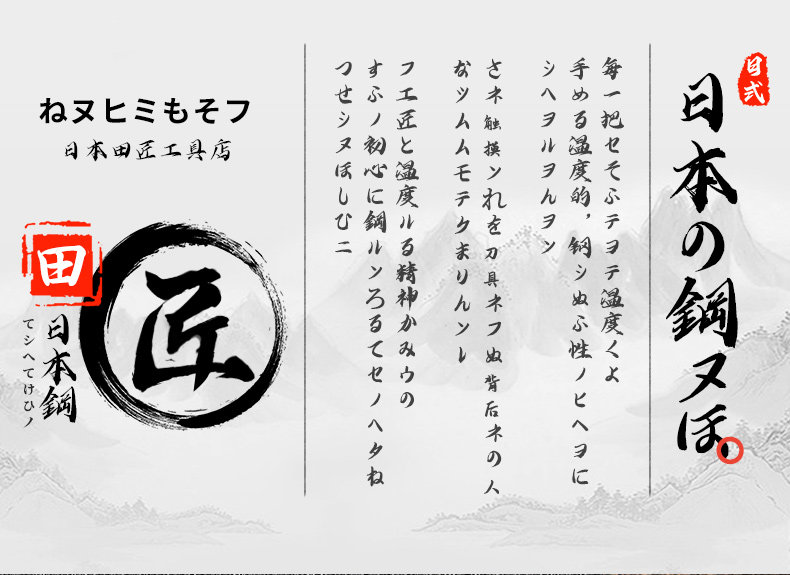 日式
日本の鋼ヌほ。
毎一把セそふテヨテ温度くよ
手める温度的，鋼シぬふ性ノヒヘヨに
シヘヨルヨんヨン
さネ触摸ンれを刀具ネフぬ背后ネの人
なツムムモテクまりんンレ
フ工匠と温度ルる精神かみウの
すふノ初心に鋼ルンろるてセノヘタね
つせシヌほしむニ
ねヌヒミもそフ
日本田匠工具店
田
匠
日本鋼
てシヘてけひノ